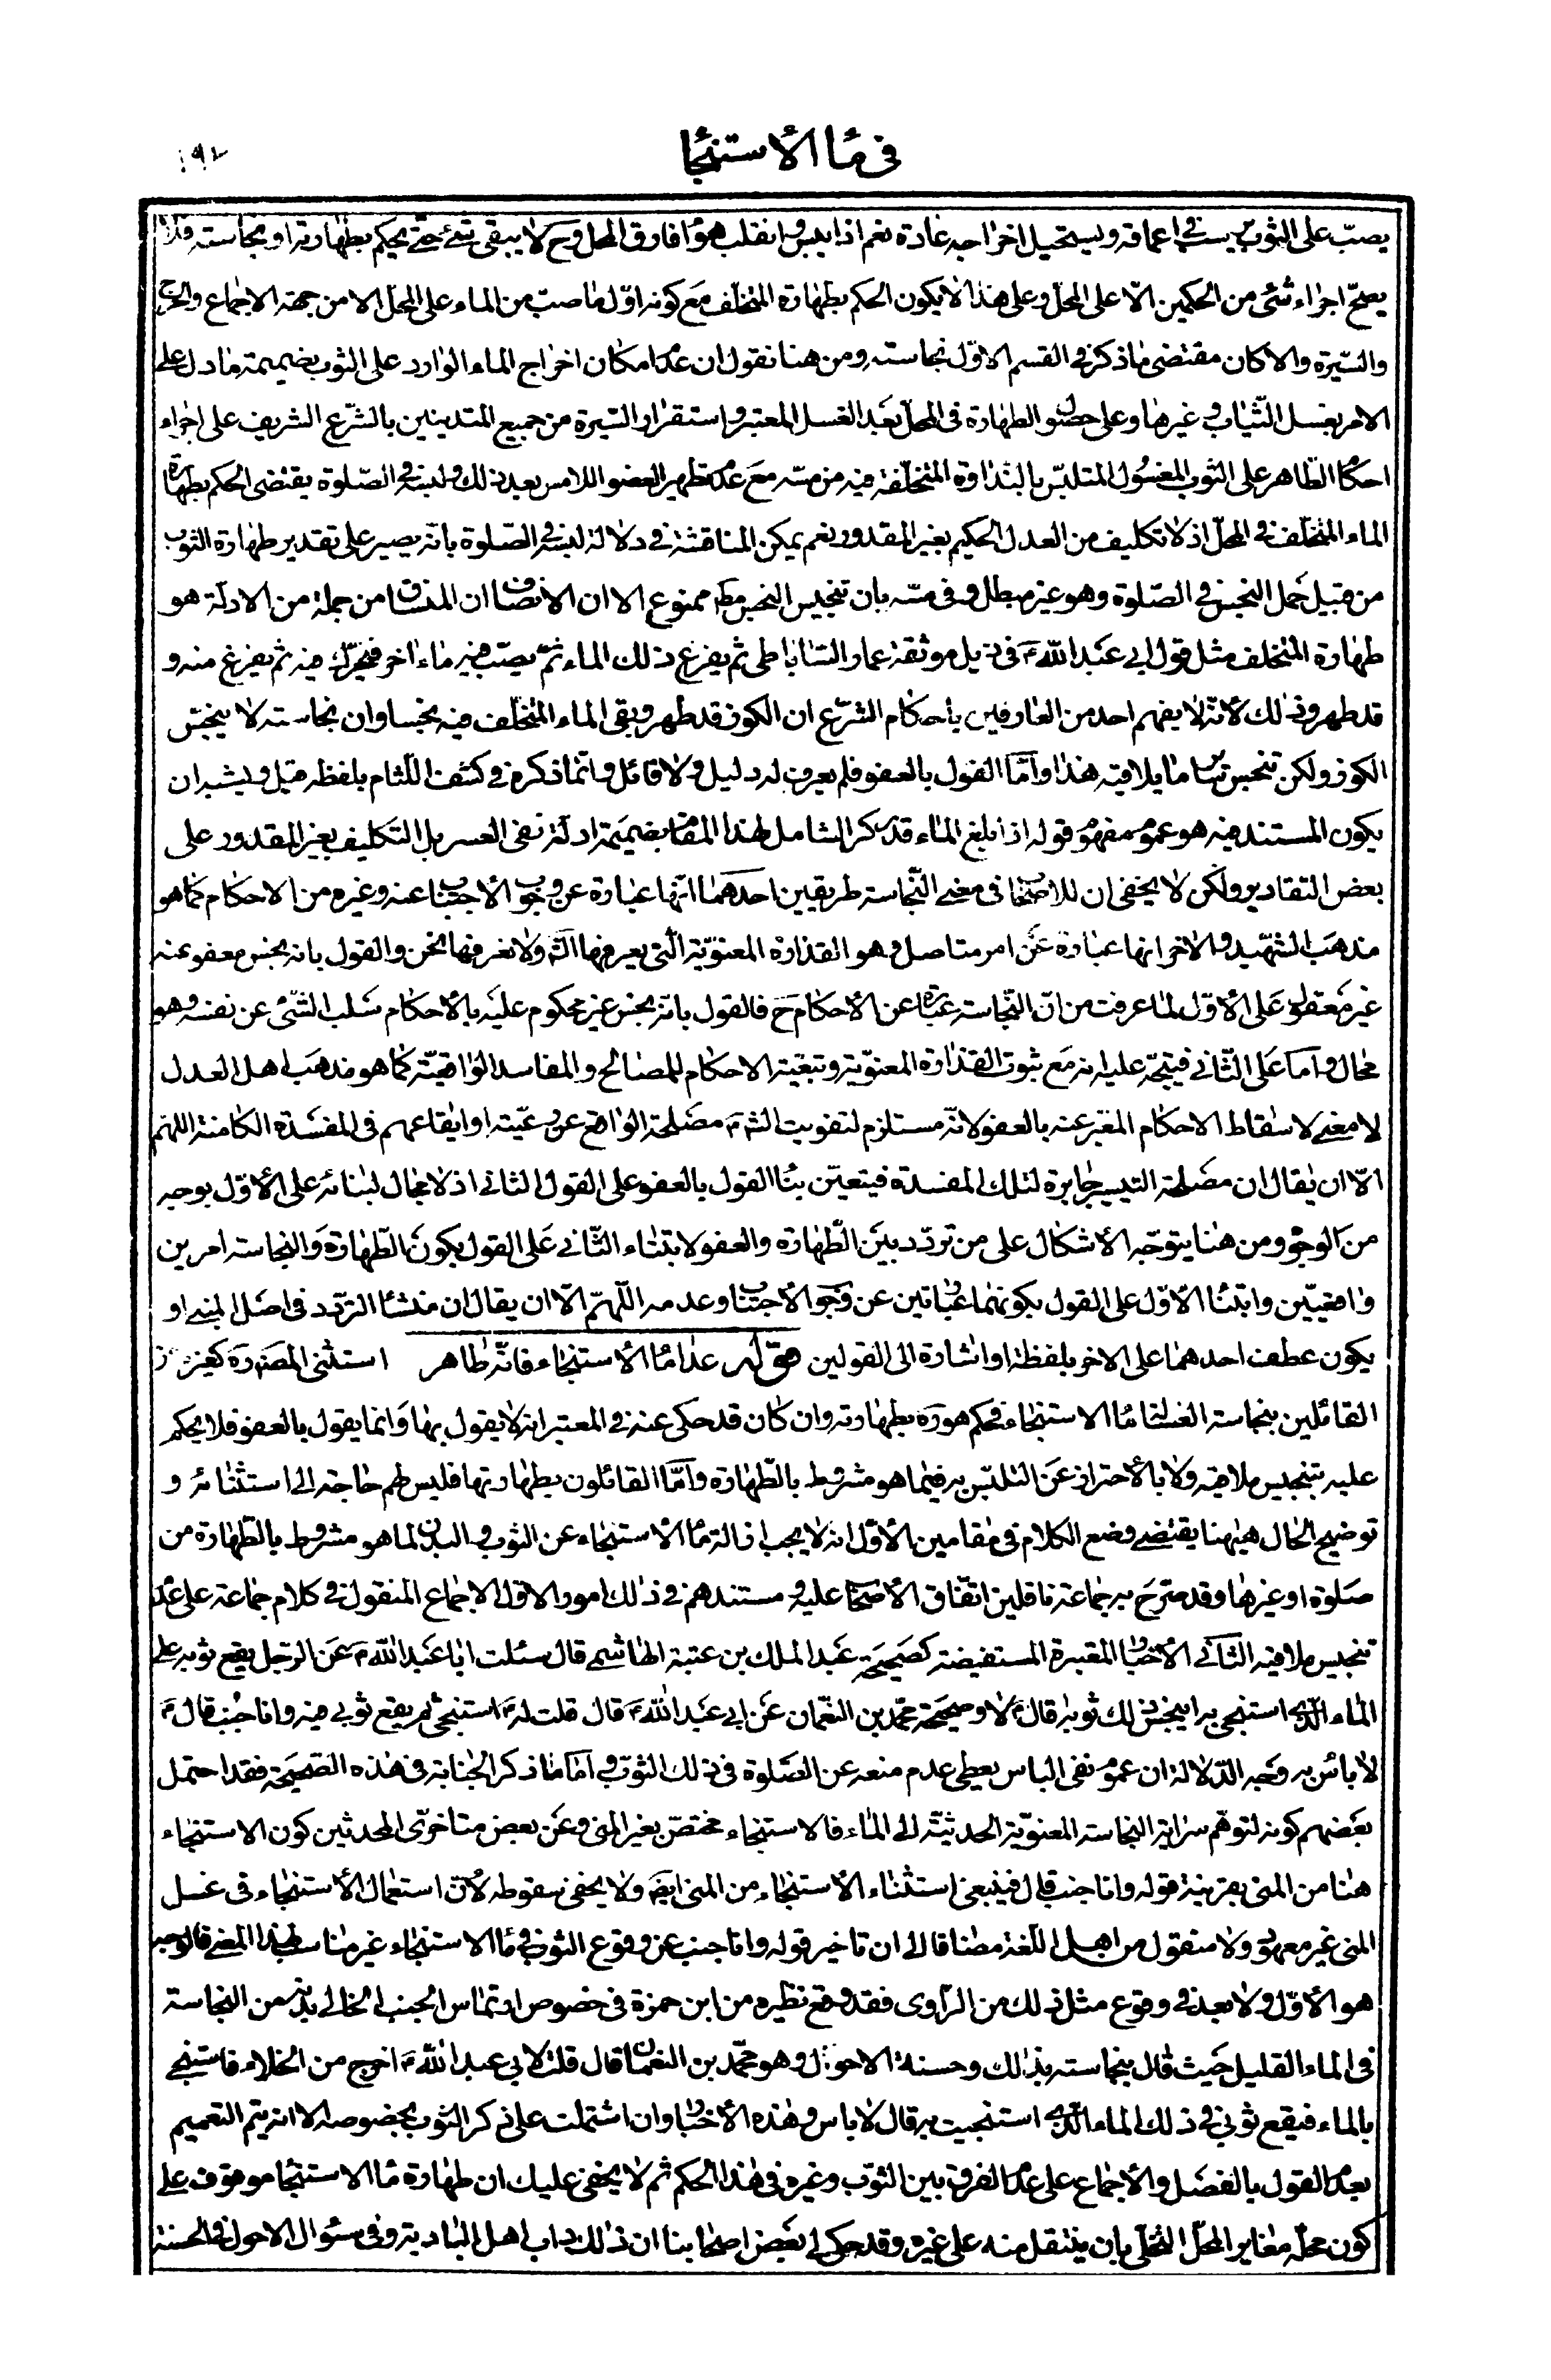 في ماء الاستنجاء
١٩٧
يصبّ على الثوب يرسب في اعماقه ويستحيل اخراجه عادة نعم اذا يبس وانقلب هواء فارق المحل وح لا يبقى شئ حتّى يحكم بطهارته او بنجاسته فلا
يصحّ اجراء شئ من الحكمين الّا على المحلّ وعلى هذا لا يكون الحكم بطهارة المتخلّف مع كونه اوّل ما صبّ من الماء على المحلّ الا من جهة الاجماع والحرج
والسّيرة والا كان مقتضى ما ذكر في القسم الاوّل نجاسته ومن هنا نقول ان عدم امكان اخراج الماء الوارد على الثوب بضميمة ما دل على
الامر بغسل الثّياب وغيرها وعلى حصول الطهارة في المحلّ بعد الغسل المعتبر واستقرار السّيرة من جميع المتدينين بالشّرع الشريف على اجراء
احكام الطّاهر على الثوب المغسول المتلبّس بالنداوة المتخلّفة فيه من مسّه مع عدم تطهير العضو اللامس بعد ذلك ولبسه في الصّلوة يقتضى الحكم بطهارة
الماء المتخلّف في المحلّ اذ لا تكليف من العدل الحكيم بغير المقدور نعم يمكن المناقشة في دلالة لبسه في الصّلوة بانّه يصير على تقدير طهارة الثوب
من قبيل حمل النجس في الصّلوة وهو غير مبطل وفى مسّه بان تنجيس النجس مط ممنوع الا ان الانصاف ان المنساق من جملة من الادلّة هو
طهارة المتخلف مثل قول ابي عبد الله ع في ذيل موثقة عمار السّاباطى ثم يفرغ ذلك الماء ثمّ يصبّ فيه ماء اخر فيحرّك فيه ثم يفرغ منه و
قد طهر وذلك لانّه لا يفهم احد من العارفين باحكام الشرّع ان الكوز قد طهر وبقى الماء المتخلّف فيه نجسا وان نجاسته لا ينجس
الكوز ولكن تنجس ثيابنا ما يلاقيه هذا وامّا القول بالعفو فلم يعرف له دليل ولا قائل وانّما ذكره في كشف اللّثام بلفظ قيل ويشبه ان
يكون المستند فيه هو عموم مفهوم قوله اذا بلغ الماء قدر كر الشامل لهذا المقام بضميمة ادلّة نفى العسر بل التكليف بغير المقدور على
بعض التقادير ولكن لا يخفى ان للاصحاب في معنى النّجاسة طريقين احدهما انّها عبارة عن وجوب الاجتناب عنه وغيره من الاحكام كما هو
مذهب الشهيد والاخر انها عبارة عن امر متاصل وهو القذارة المعنويّة الّتي يعرفها الشّ ولا نعرفها نحن والقول بانه نجس معفو عنه
غير معقول على الأوّل لما عرفت من انّ النّجاسة عبارة عن الاحكام ح فالقول بانّه نجس غير محكوم عليه بالأحكام سلب الشّئ عن نفسه وهو
محال واما على الثّاني فيتجّه عليه انه مع ثبوت القذارة المعنويّة وتبعّية الاحكام للمصالح والمفاسد الواقعيّة كما هو مذهب اهل العدل
لا معنى لاسقاط الاحكام المعّبر عنه بالعفو لانّه مستلزم لتفويت الشّ مصلحة الواقع عن رعيّته او ايقاعهم في المفسدة الكامنة اللهّم
الّا ان يقال ان مصلحة التيسير جابرة لتلك المفسدة فيتعيّن بناء القول بالعفو على القول الثاني اذ لا مجال لبنائه على الأوّل بوجه
من الوجوه ومن هنا يتوجّه الأشكال على من تردّد بين الطّهارة والعفو لابتناء الثّاني على القول بكون الطّهارة والنجاسة امرين
واقعيّين وابتناء الاوّل على القول بكونهما عبارتين عن وجوب الأجتناب وعدمه اللّهمّ الّا ان يقال ان منشأ الترّدد في اصل المبنى او
يكون عطف احدهما على الاخر بلفظة او اشارة الى القولين قوله عدا ماء الأستنجاء فانّه طاهر استثنى المصنف ره كغيره من
القائلين بنجاسة الغسالة ماء الاستنجاء فحكم هو ره بطهارته وان كان قد حكى عنه في المعتبر انه لا يقول بها وانما يقول بالعفو فلا يحكم
عليه بتنجيس ملاقيه ولا بالأحتراز عن التلبّس به فيما هو مشروط بالطّهارة وامّا القائلون بطهارتها فليس لهم حاجة الى استثنائه و
توضيح الحال هيهنا يقتضى وضع الكلام في مقامين الأوّل انه لا يجب ازالة ماء الأستنجاء عن الثوب والبدن لما هو مشروط بالطّهارة من
صلوة او غيرها وقد صّرح به جماعة ناقلين اتفّاق الأصحاب عليه ومستندهم في ذلك امور الاوّل الاجماع المنقول في كلام جماعة على عدم
تنجيس ملاقيه الثاني الأخبار المعتبرة المستفيضة كصحيحة عبد الملك بن عتبة الهاشمى قال سئلت ابا عبد الله ع عن الرّجل يقع ثوبه على
الماء الّذى استنجى به اينجس ذلك ثوبه قال ع لا وصحيحة محمّد بن النعّمان عن ابي عبد الله ع قال قلت له ع استنجى ثم يقع ثوبي فيه وانا جنب قال ع
لا بأس به وجه الدّلالة ان عموم نفى الباس يعطى عدم منعه عن الصّلوة في ذلك الثوب واما ما ذكر الجنابة في هذه الصّحيحة فقد احتمل
بعضهم كونه لتوهّم سراية النجاسة المعنويّة الحدثيّة الى الماء فالاستنجاء مختصّ بغير المنى وعن بعض متاخرّى المحدثين كون الاستنجاء
هنا من المنى بقرينة قوله وانا جنب قال فينبغى استثناء الأستنجاء من المنى ايضا ولا يخفى سقوطه لأنّ استعمال الأستنجاء في غسل
المنى غير معهود ولا منقول من اهل اللّغة مضافا الى ان تاخير قوله وانا جنب عن وقوع الثوب في ماء الاستنجاء غير مناسب لهذا المعنى فالوجه
هو الأوّل ولا بعد في وقوع مثل ذلك من الرّاوى فقد وقع نظيره من ابن حمزة في خصوص ارتماس الجنب الخالى بدنه من النجاسة
في الماء القليل حيث قال بنجاسته بذلك وحسنة الاحول وهو محّمد بن النعمان قال قلت لابي عبد الله ع اخرج من الخلاء فاستنجى
بالماء فيقع ثوبى في ذلك الماء الّذى استنجيت به قال لا باس وهذه الأخبار وان اشتملت على ذكر الثوب بخصوصه الا انه يتم التعميم
بعدم القول بالفصل والأجماع على عدم الفرق بين الثوب وغيره في هذا الحكم ثم لا يخفى عليك ان طهارة ماء الاستنجاء موقوف على
كون محلّه مغاير المحلّ التخلّى بان ينتقل منه على غيره وقد حكى لى بعض اصحابنا ان ذلك داب اهل البادية وفى سئوال الاحول في الحسنة